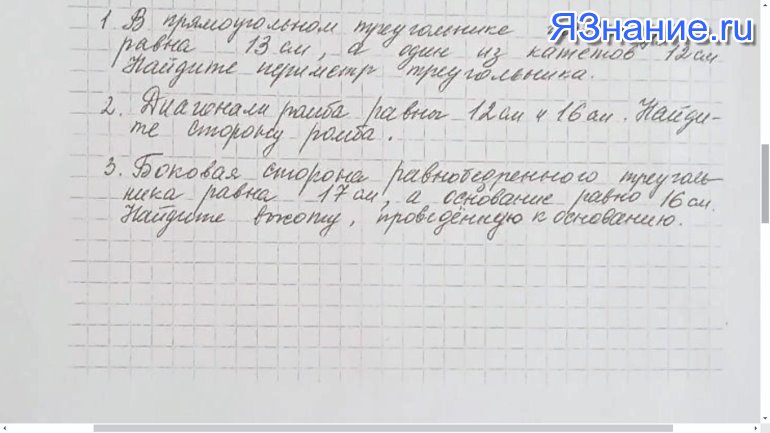 ЯЗнание.ru
1 В прямоугольном треугольнике
равна 13 см, а один из катетов 12 см.
Найдите периметр треугольника.
2. Диагонали ромба равны 12 см и 16 см. Найди-
те сторону ромба.
3. Боковая сторона равнобедренного треуголь-
ника равна 17 см, а основание равно 16 см.
Найдите высоту, проведённую к основанию.